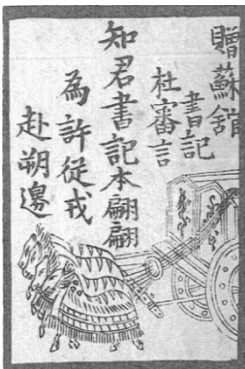 贈蘇綰
書記
杜審言
知君書記本翩翩
為許從戎
赴朔邊